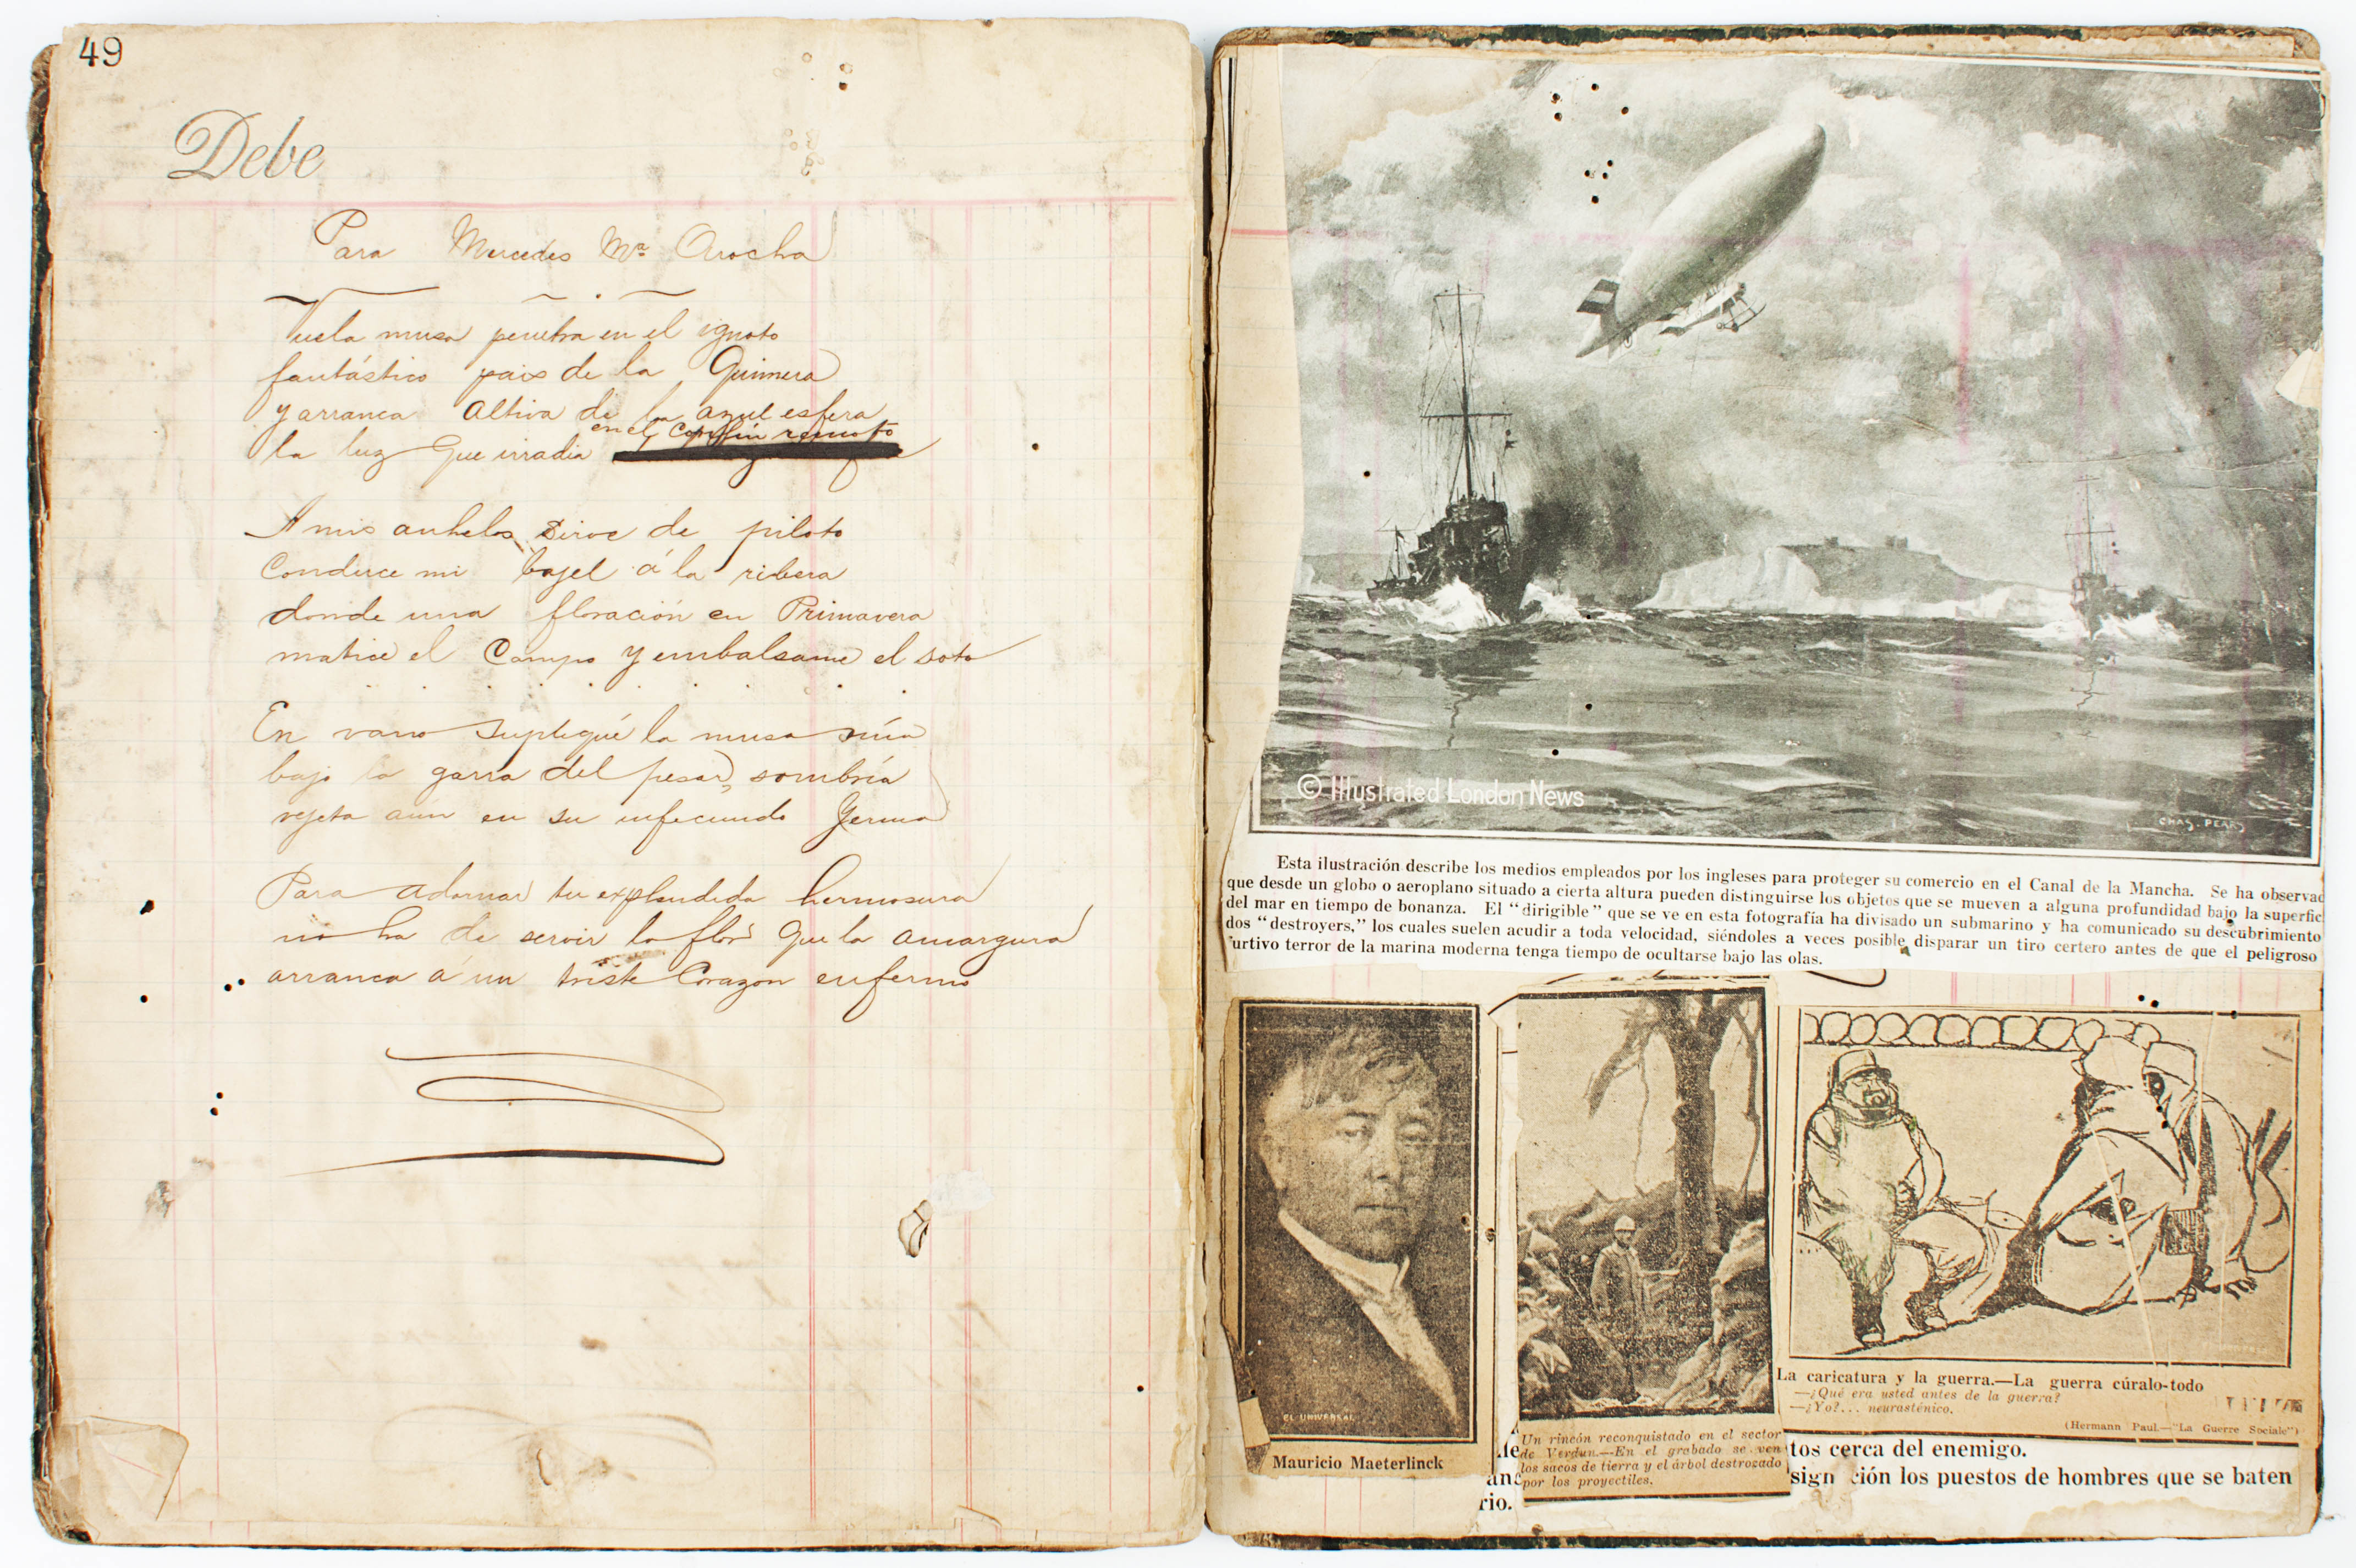 49
Debe
Para Mercedes Mª Arocha
Vuela musa penetra en el ignoto
fantástico pais de la Quimera
y arranca altiva de la azul esfera
en el confin remoto
la luz que irradia
A mis anhelos sirve de piloto
Conduce mi bajel á la ribera
donde una floración en Primavera
matice el Campo y embalsame el soto
En vano supliqué la musa mía
bajo la garra del pesar, sombría
vejeta aún en su infecundo yermo
Para adornar tu explendida hermosura
no ha de servir la flor que la amargura
arranca á un triste Corazon enfermo
© Illustrated London News
CHAS. PEARS
Esta ilustración describe los medios empleados por los ingleses para proteger su comercio en el Canal de la Mancha. Se ha observad
que desde un globo o aeroplano situado a cierta altura pueden distinguirse los objetos que se mueven a alguna profundidad bajo la superfic
del mar en tiempo de bonanza. El "dirigible" que se ve en esta fotografía ha divisado un submarino y ha comunicado su descubrimiento
dos "destroyers," los cuales suelen acudir a toda velocidad, siéndoles a veces posible disparar un tiro certero antes de que el peligroso
urtivo terror de la marina moderna tenga tiempo de ocultarse bajo las olas.
EL UNIVERSAL
Mauricio Maeterlinck
Un rincón reconquistado en el sector
de Verdun.—En el grabado se ven
los sacos de tierra y el árbol destrozado
por los proyectiles.
La caricatura y la guerra.—La guerra cúralo-todo
—¿Qué era usted antes de la guerra?
—¿Yo?... neurasténico.
(Hermann Paul.—"La Guerre Sociale")
tos cerca del enemigo.
ción los puestos de hombres que se baten
rio.